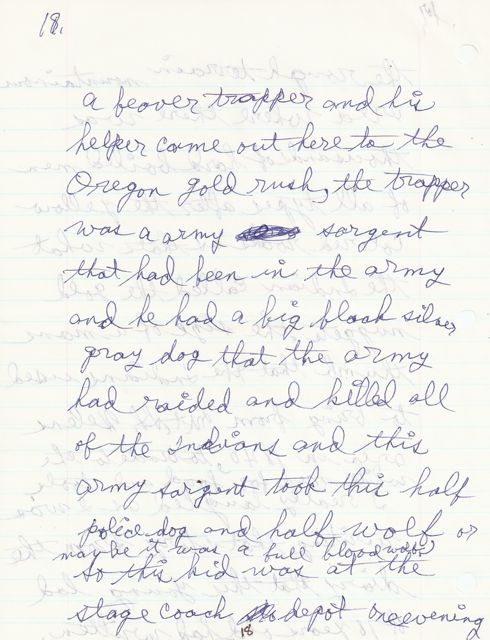 18.
a beaver trapper and his
helper come out here to the
Oregon gold rush, the trapper
was a army sargent
that had been in the army
and he had a big black silver
gray dog that the army
had raided and killed all
of the indians and this
army sargent took this half
police dog and half wolf or
maybe it was a full blood wolf
so this kid was at the
stage coach depot one evening
18